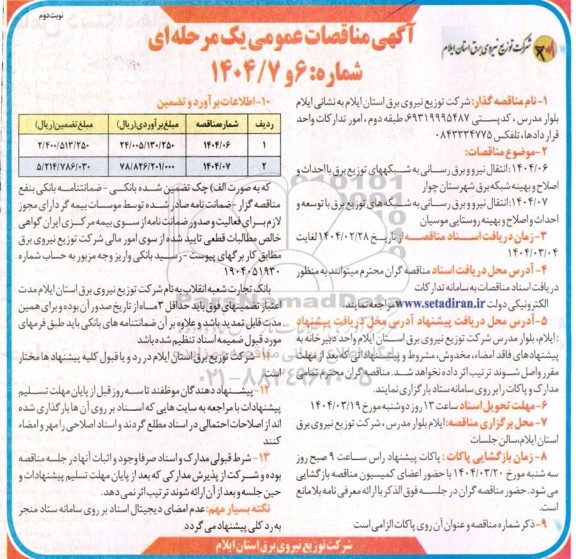 نوبت دوم
آگهی مناقصات عمومی یک مرحله ای
شماره: ۶ و ۱۴۰۴/۷
شرکت توزیع نیروی برق استان ایلام
۱- نام مناقصه گذار: شرکت توزیع نیروی برق استان ایلام به نشانی ایلام
بلوار مدرس، کد پستی ۶۹۳۱۹۹۹۵۴۸۷، طبقه دوم، امور تدارکات واحد
قراردادها، تلفکس ۰۸۴۳۳۳۴۷۷۵
۲- موضوع مناقصات:
۱۴۰۴/۰۶: انتقال نیرو و برق رسانی به شبکههای توزیع برق با احداث و
اصلاح و بهینه شبکه برق شهرستان چوار
۱۴۰۴/۰۷: انتقال نیرو و برق رسانی به شبکه های توزیع برق با توسعه و
احداث و اصلاح و بهینه روستایی موسیان
۳- زمان دریافت اسناد مناقصه از تاریخ ۱۴۰۴/۰۲/۲۸ لغایت
۱۴۰۴/۰۳/۰۴
۴- آدرس محل دریافت اسناد مناقصه گران محترم میتوانند به منظور
دریافت اسناد مناقصات به سامانه تدارکات
الکترونیکی دولت www.setadiran.ir مراجعه نمایند
۵- آدرس محل دریافت پیشنهاد آدرس محل دریافت پیشنهاد
: ایلام، بلوار مدرس شرکت توزیع نیروی برق استان ایلام واحد دبیرخانه به
پیشنهادهای فاقد امضاء، مخدوش، مشروط و پیشنهاداتی که بعد از مهلت
مقرر واصل شوند ترتیب اثر داده نخواهد شد. مناقصه گران محترم تمامی
مدارک و پاکات را بر روی سامانه ستاد بارگزاری نمایند.
۶- مهلت تحویل اسناد ساعت ۱۳ روز دوشنبه مورخ ۱۴۰۴/۰۳/۱۹
۷- محل برگزاری مناقصه: ایلام بلوار مدرس، شرکت توزیع نیروی برق
استان ایلام، سالن جلسات
۸- زمان بازگشایی پاکات: پاکات پیشنهاد راس ساعت ۹ صبح روز
سه شنبه مورخ ۱۴۰۴/۰۳/۲۰ با حضور اعضای کمیسیون مناقصه بازگشایی
می شود. حضور مناقصه گران در جلسه فوق الذکر با ارائه معرفی نامه بلامانع
است.
۹- ذکر شماره مناقصه و عنوان آن روی پاکات الزامی است
۱۰- اطلاعات برآورد و تضمین
ردیف شماره مناقصه مبلغ برآوردی (ریال) مبلغ تضمین (ریال)
۱ ۱۴۰۴/۰۶ ۲۴/۰۰۵/۱۳۰/۲۵۰ ۲/۴۰۰/۵۱۳/۲۵۰
۲ ۱۴۰۴/۰۷ ۷۸/۸۲۶/۲۰۱/۰۰۰ ۵/۲۱۴/۷۸۶/۰۳۰
که به صورت الف) چک تضمین شده بانکی - ضمانتنامه بانکی بنفع
مناقصه گزار - ضمانت نامه صادر شده توسط موسسات بیمه گر دارای مجوز
لازم برای فعالیت و صدور ضمانت نامه از سوی بیمه مرکزی ایران گواهی
خالص مطالبات قطعی تایید شده از سوی امور مالی شرکت توزیع نیروی برق
مطابق کاربرگهای پیوست - رسید بانکی واریز وجه مزبور به حساب شماره
۱۹۰۴۰۵۱۹۳۰
بانک تجارت شعبه انقلاب به نام شرکت توزیع نیروی برق استان ایلام مدت
اعتبار تضمینهای فوق باید حداقل ۳ ماه از تاریخ صدور آن بوده و برای همین
مدت قابل تمدید باشد و علاوه بر آن ضمانتنامه های بانکی باید طبق فرمهای
مورد قبول ضمیمه اسناد تنظیم شده باشد
۱۱- شرکت توزیع برق استان ایلام در رد و یا قبول کلیه پیشنهادها مختار
است
۱۲- پیشنهاد دهندگان موظفند تا سه روز قبل از پایان مهلت تسلیم
پیشنهادات با مراجعه به سایت هایی که اسناد بر روی آن ها بارگذاری شده
اند از اصلاحات احتمالی در اسناد مطلع گردند و اسناد اصلاحی را مهر و امضاء
کنند
۱۳- شرط قبولی مدارک و اسناد صرفا وجود و اثبات آنها در جلسه مناقصه
بوده و شرکت از پذیرش مدارکی که بعد از پایان مهلت تسلیم پیشنهادات و
حین جلسه و بعد از آن ارائه شوند ترتیب اثر نمی دهد.
نکته بسیار مهم: عدم امضای دیجیتال اسناد بر روی سامانه ستاد منجر
به رد کلی پیشنهاد می گردد
شرکت توزیع نیروی برق استان ایلام